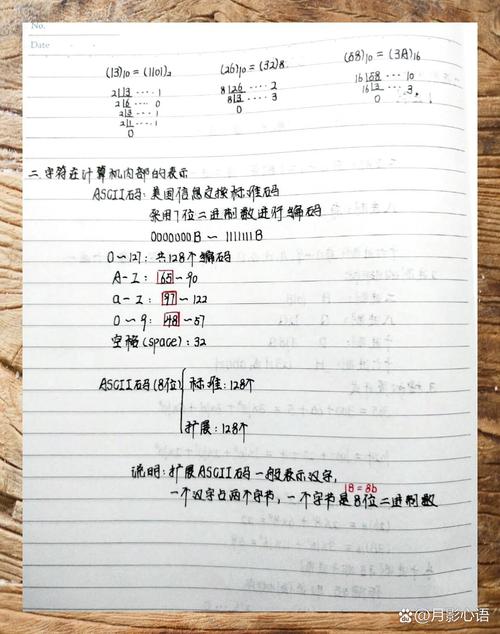 No.
Date
(13)₁₀ = (1101)₂ (26)₁₀ = (32)₈ (68)₁₀ = (3A)₁₆
2 13 ···· 1 8 26 ···· 2 16 68 ···· 10
2 6 ···· 0 8 3 ···· 3 16 3 ···· 3
2 3 ···· 1 0 0
2 1 ···· 1
0
二.字符在计算机内部的表示
ASCII码:美国信息交换标准码
采用7位二进制数进行编码
0000000B ~ 1111111B
0~127:共128个编码
A-Z:65~90
a-z:97~122
0~9:48~57
空格(space):32
ASCII码(8位) 标准:128个
扩展:128个
说明:扩展ASCII码一般表示汉字,
1B=8b
一个汉字占两个字节,一个字节是8位二进制数
百家号/月影心语